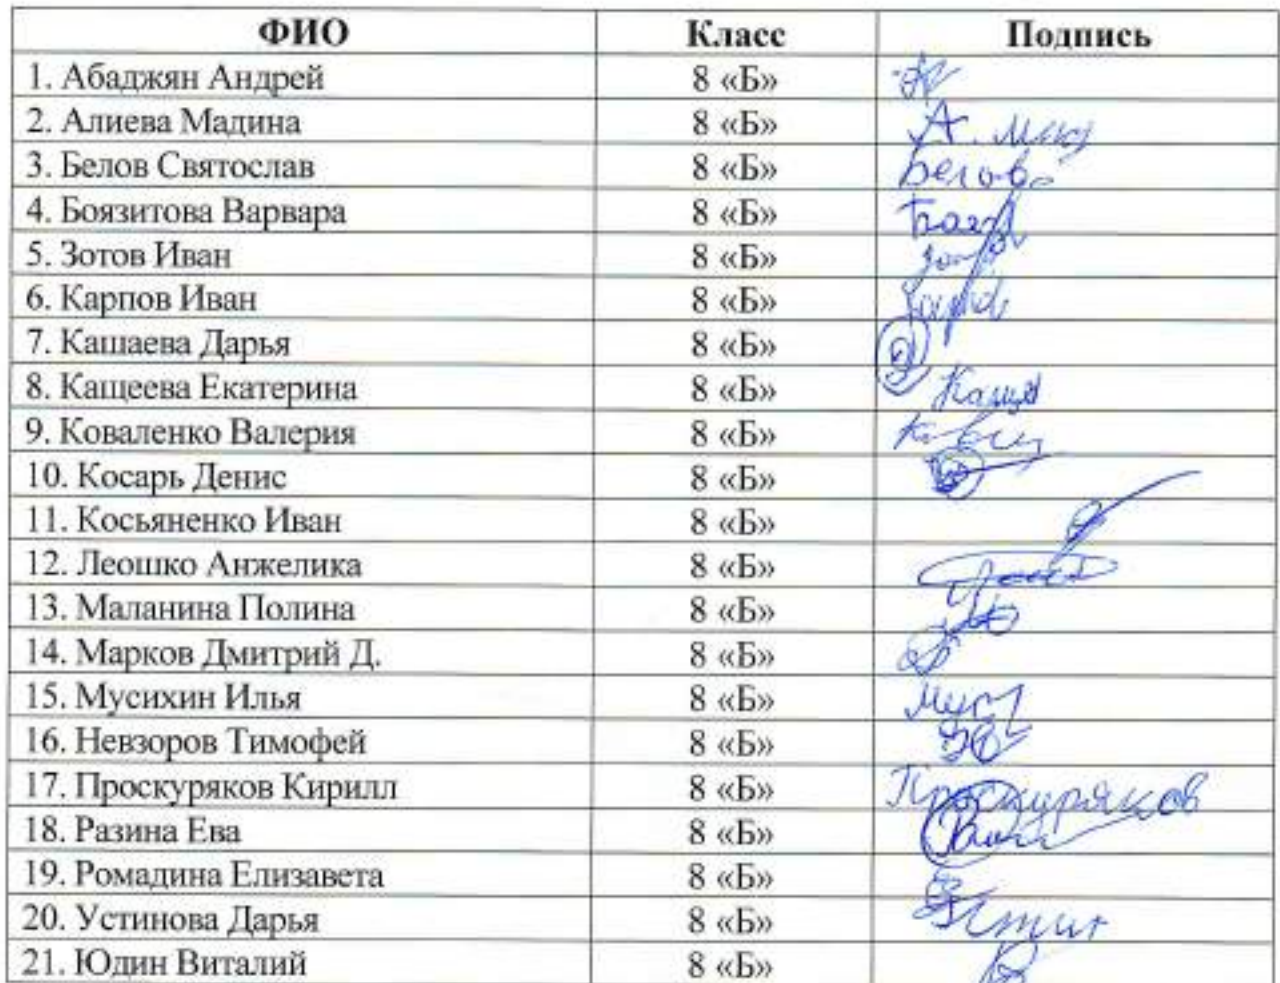 ФИО Класс Подпись
1. Абаджян Андрей 8 «Б»
2. Алиева Мадина 8 «Б» А.
3. Белов Святослав 8 «Б» Белов
4. Боязитова Варвара 8 «Б»
5. Зотов Иван 8 «Б»
6. Карпов Иван 8 «Б»
7. Кашаева Дарья 8 «Б»
8. Кащеева Екатерина 8 «Б»
9. Коваленко Валерия 8 «Б»
10. Косарь Денис 8 «Б»
11. Косьяненко Иван 8 «Б»
12. Леошко Анжелика 8 «Б»
13. Маланина Полина 8 «Б»
14. Марков Дмитрий Д. 8 «Б»
15. Мусихин Илья 8 «Б»
16. Невзоров Тимофей 8 «Б»
17. Проскуряков Кирилл 8 «Б» Проскуряков
18. Разина Ева 8 «Б»
19. Ромадина Елизавета 8 «Б»
20. Устинова Дарья 8 «Б»
21. Юдин Виталий 8 «Б»